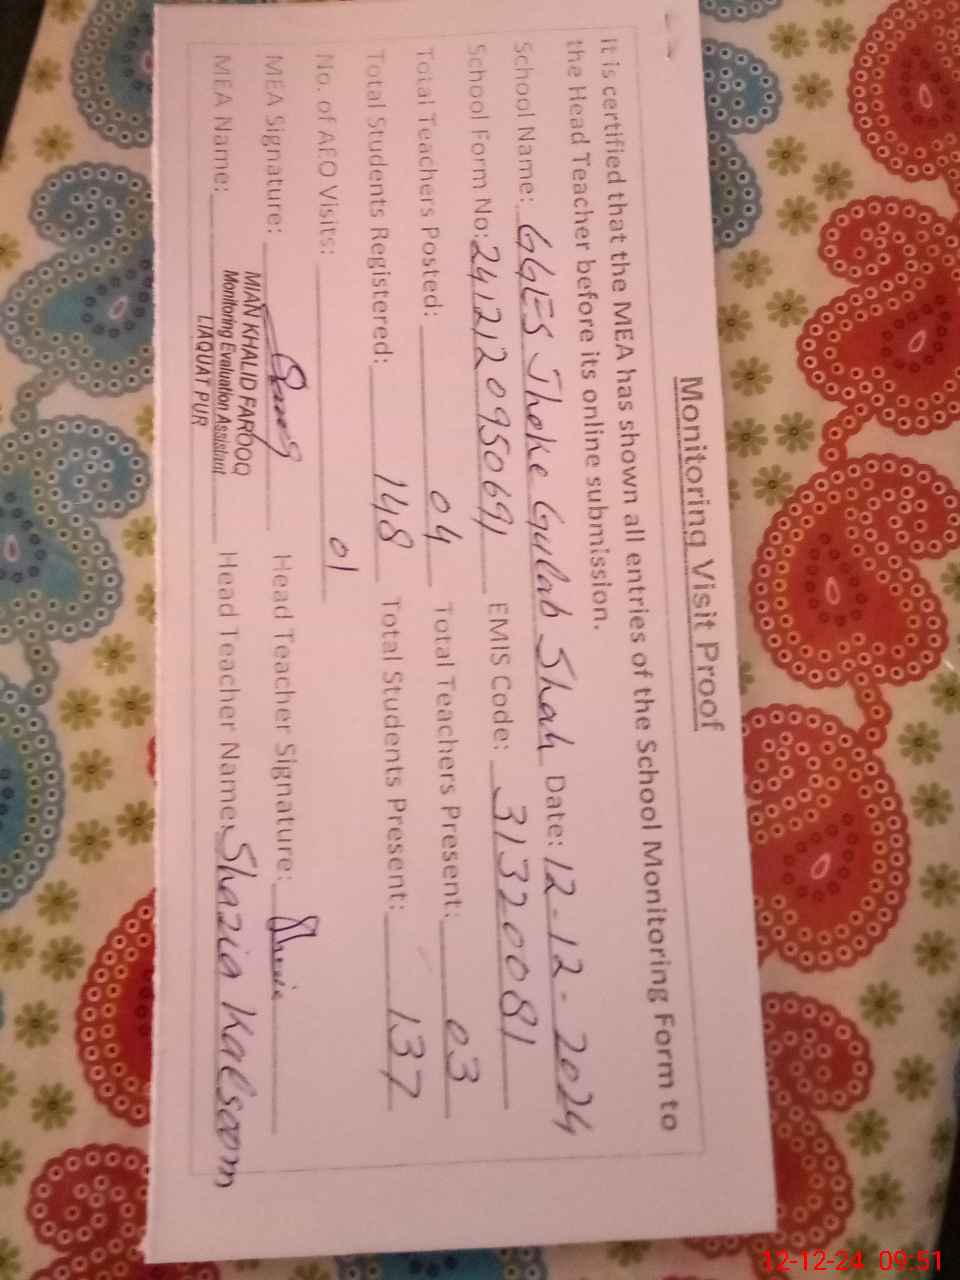 Monitoring Visit Proof
It is certified that the MEA has shown all entries of the School Monitoring Form to
the Head Teacher before its online submission.
School Name: GGES Jhoke Gulab Shah Date: 12-12-2024
School Form No: 241212095069 EMIS Code: 31320081
Total Teachers Posted: 04 Total Teachers Present: 03
Total Students Registered: 148 Total Students Present: 137
No. of AEO Visits: 01
MEA Signature: Head Teacher Signature:
MEA Name: MIAN KHALID FAROOQ Head Teacher Name: Shazia Kalsoom
Monitoring Evaluation Assistant
LIAQUAT PUR
12-12-24 09:51